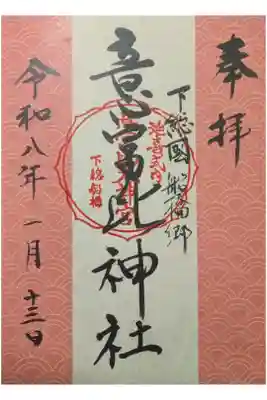 奉拝
下総國船橋郷
意富比神社
下総船橋
令和八年一月十三日